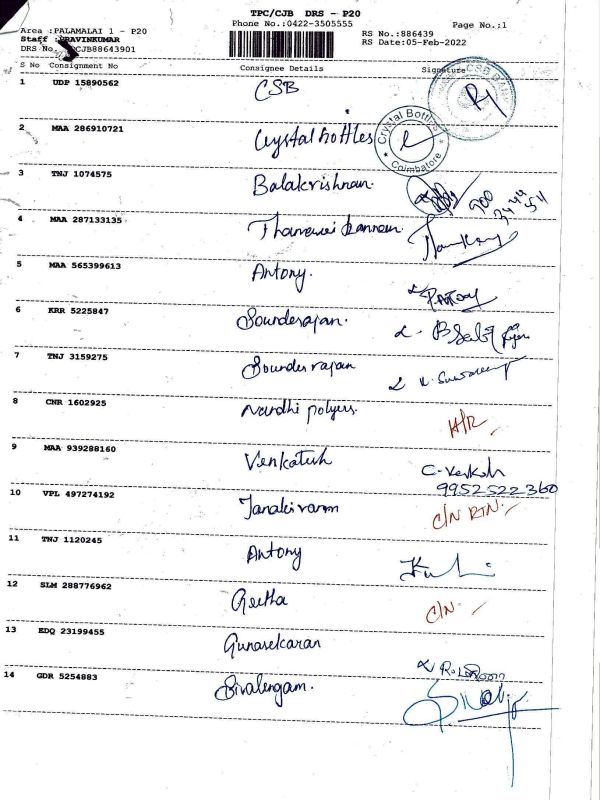 TPC/CJB DRS - P20
Area :PALAMALAI 1 - P20 Phone No.:0422-3505555 Page No.:1
Staff :PRAVINKUMAR RS No.:886439
DRS No. CJB88643901 RS Date:05-Feb-2022
S No Consignment No Consignee Details Signature
1 UDP 15890562 CSB
CSB BANK
2 MAA 286910721 Crystal bottles
Crystal Bottles
★ Coimbatore ★
3 TNJ 1074575 Balakrishnan. 900
4 MAA 287133135
5 MAA 565399613 Antony.
6 KRR 5225847 Sounderajan.
7 TNJ 3159275 Sounderrajan
8 CNR 1602925 Nandhi polyers H/R
9 MAA 939288160 Venkatesh C-Venkatesh
9952522360
10 VPL 497274192 Janakiraman C/N RTN.
11 TNJ 1120245 Antony
12 SLM 288776962 Geetha C/N.
13 EDQ 23199455 Gunasekaran
14 GDR 5254883 Sivalengam.